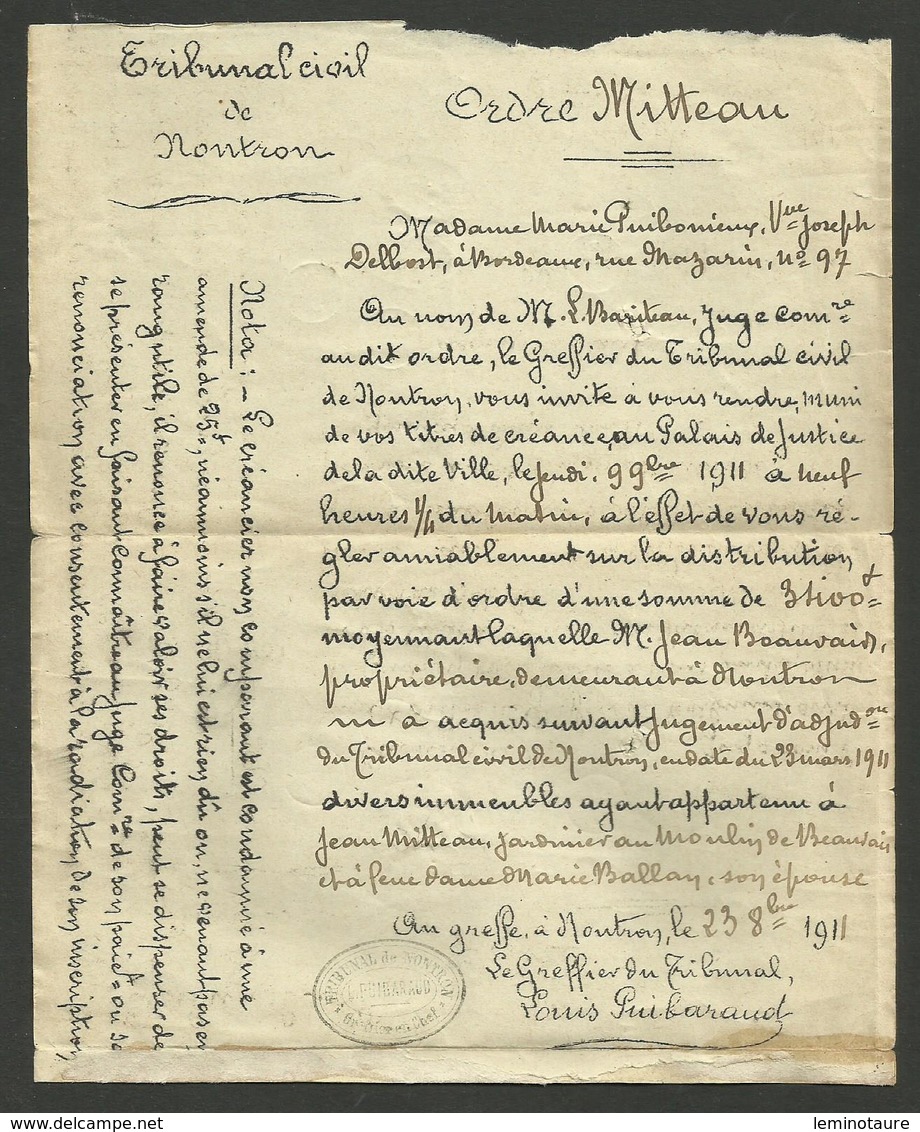 Tribunal civil
de
Nontron
Ordre Mitteau
Madame Marie Puibonieux, Vve Joseph
Delbost, à Bordeaux, rue Mazarin, no 97
Au nom de M. L. Bariteau, Juge Comre
au dit ordre, le Greffier du Tribunal civil
de Nontron, vous invite à vous rendre, muni
de vos titres de créance, au Palais de Justice
de la dite Ville, le Jeudi, 9 9bre 1911 à neuf
heures 1/4 du matin, à l'effet de vous ré-
gler amiablement sur la distribution
par voie d'ordre d'une somme de
moyennant laquelle M. Jean Beauvais,
propriétaire, demeurant à Nontron
a acquis suivant Jugement d'adjudon
du Tribunal civil de Nontron, en date du 23 mars 1911
divers immeubles ayant appartenu à
Jean Mitteau, Jardinier au Moulin de Beauvais
et à feue dame Marie Ballan, son épouse
Au greffe, à Nontron, le 23 8bre 1911
Le Greffier du Tribunal,
Louis Puibaraud
TRIBUNAL de NONTRON
L. PUIBARAUD
Greffier en Chef
Nota : - Le créancier non comparant est condamné à une
amende de 25f, néanmoins s'il ne lui est rien dû ou, ne venant pas en
rang utile, il renonce à faire valoir ses droits, peut se dispenser de
se présenter en faisant connaître au Juge Comre de son paiet ou sa
renonciation avec consentement à la radiation de son inscription
leminotaure